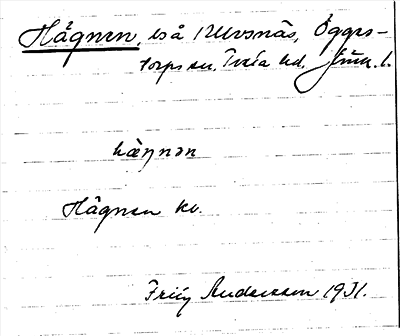 Hågnen, lså 12 Ulvsnäs, Öggès-
torps sn, Tveta hd. Jönk. l.
hàŋnən
Hågnen kv.
Frity Andersson 1931.